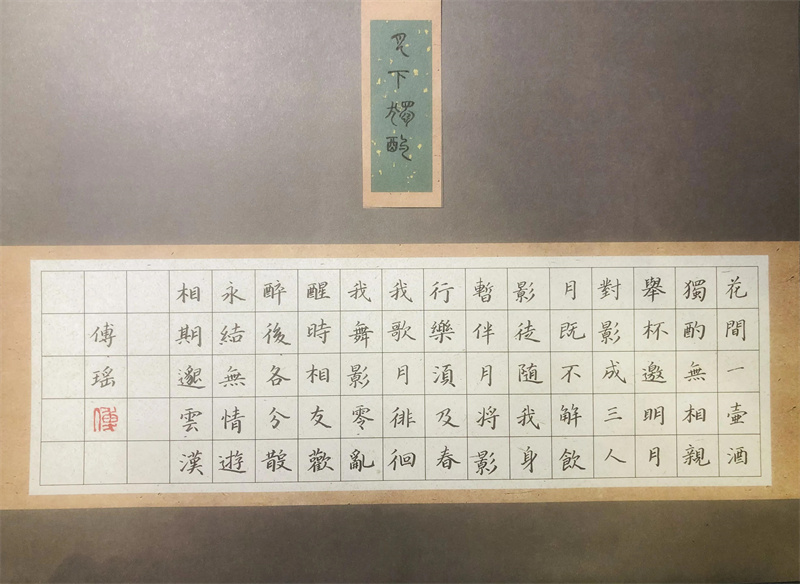 月下獨酌
花間一壺酒
獨酌無相親
舉杯邀明月
對影成三人
月既不解飲
影徒隨我身
暫伴月將影
行樂湏及春
我歌月徘徊
我舞影零亂
醒時相友歡
醉後各分散
永結無情遊
相期邈雲漢
傅瑤
傅